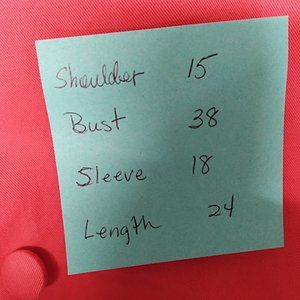 Shoulder 15
Bust 38
Sleeve 18
Length 24